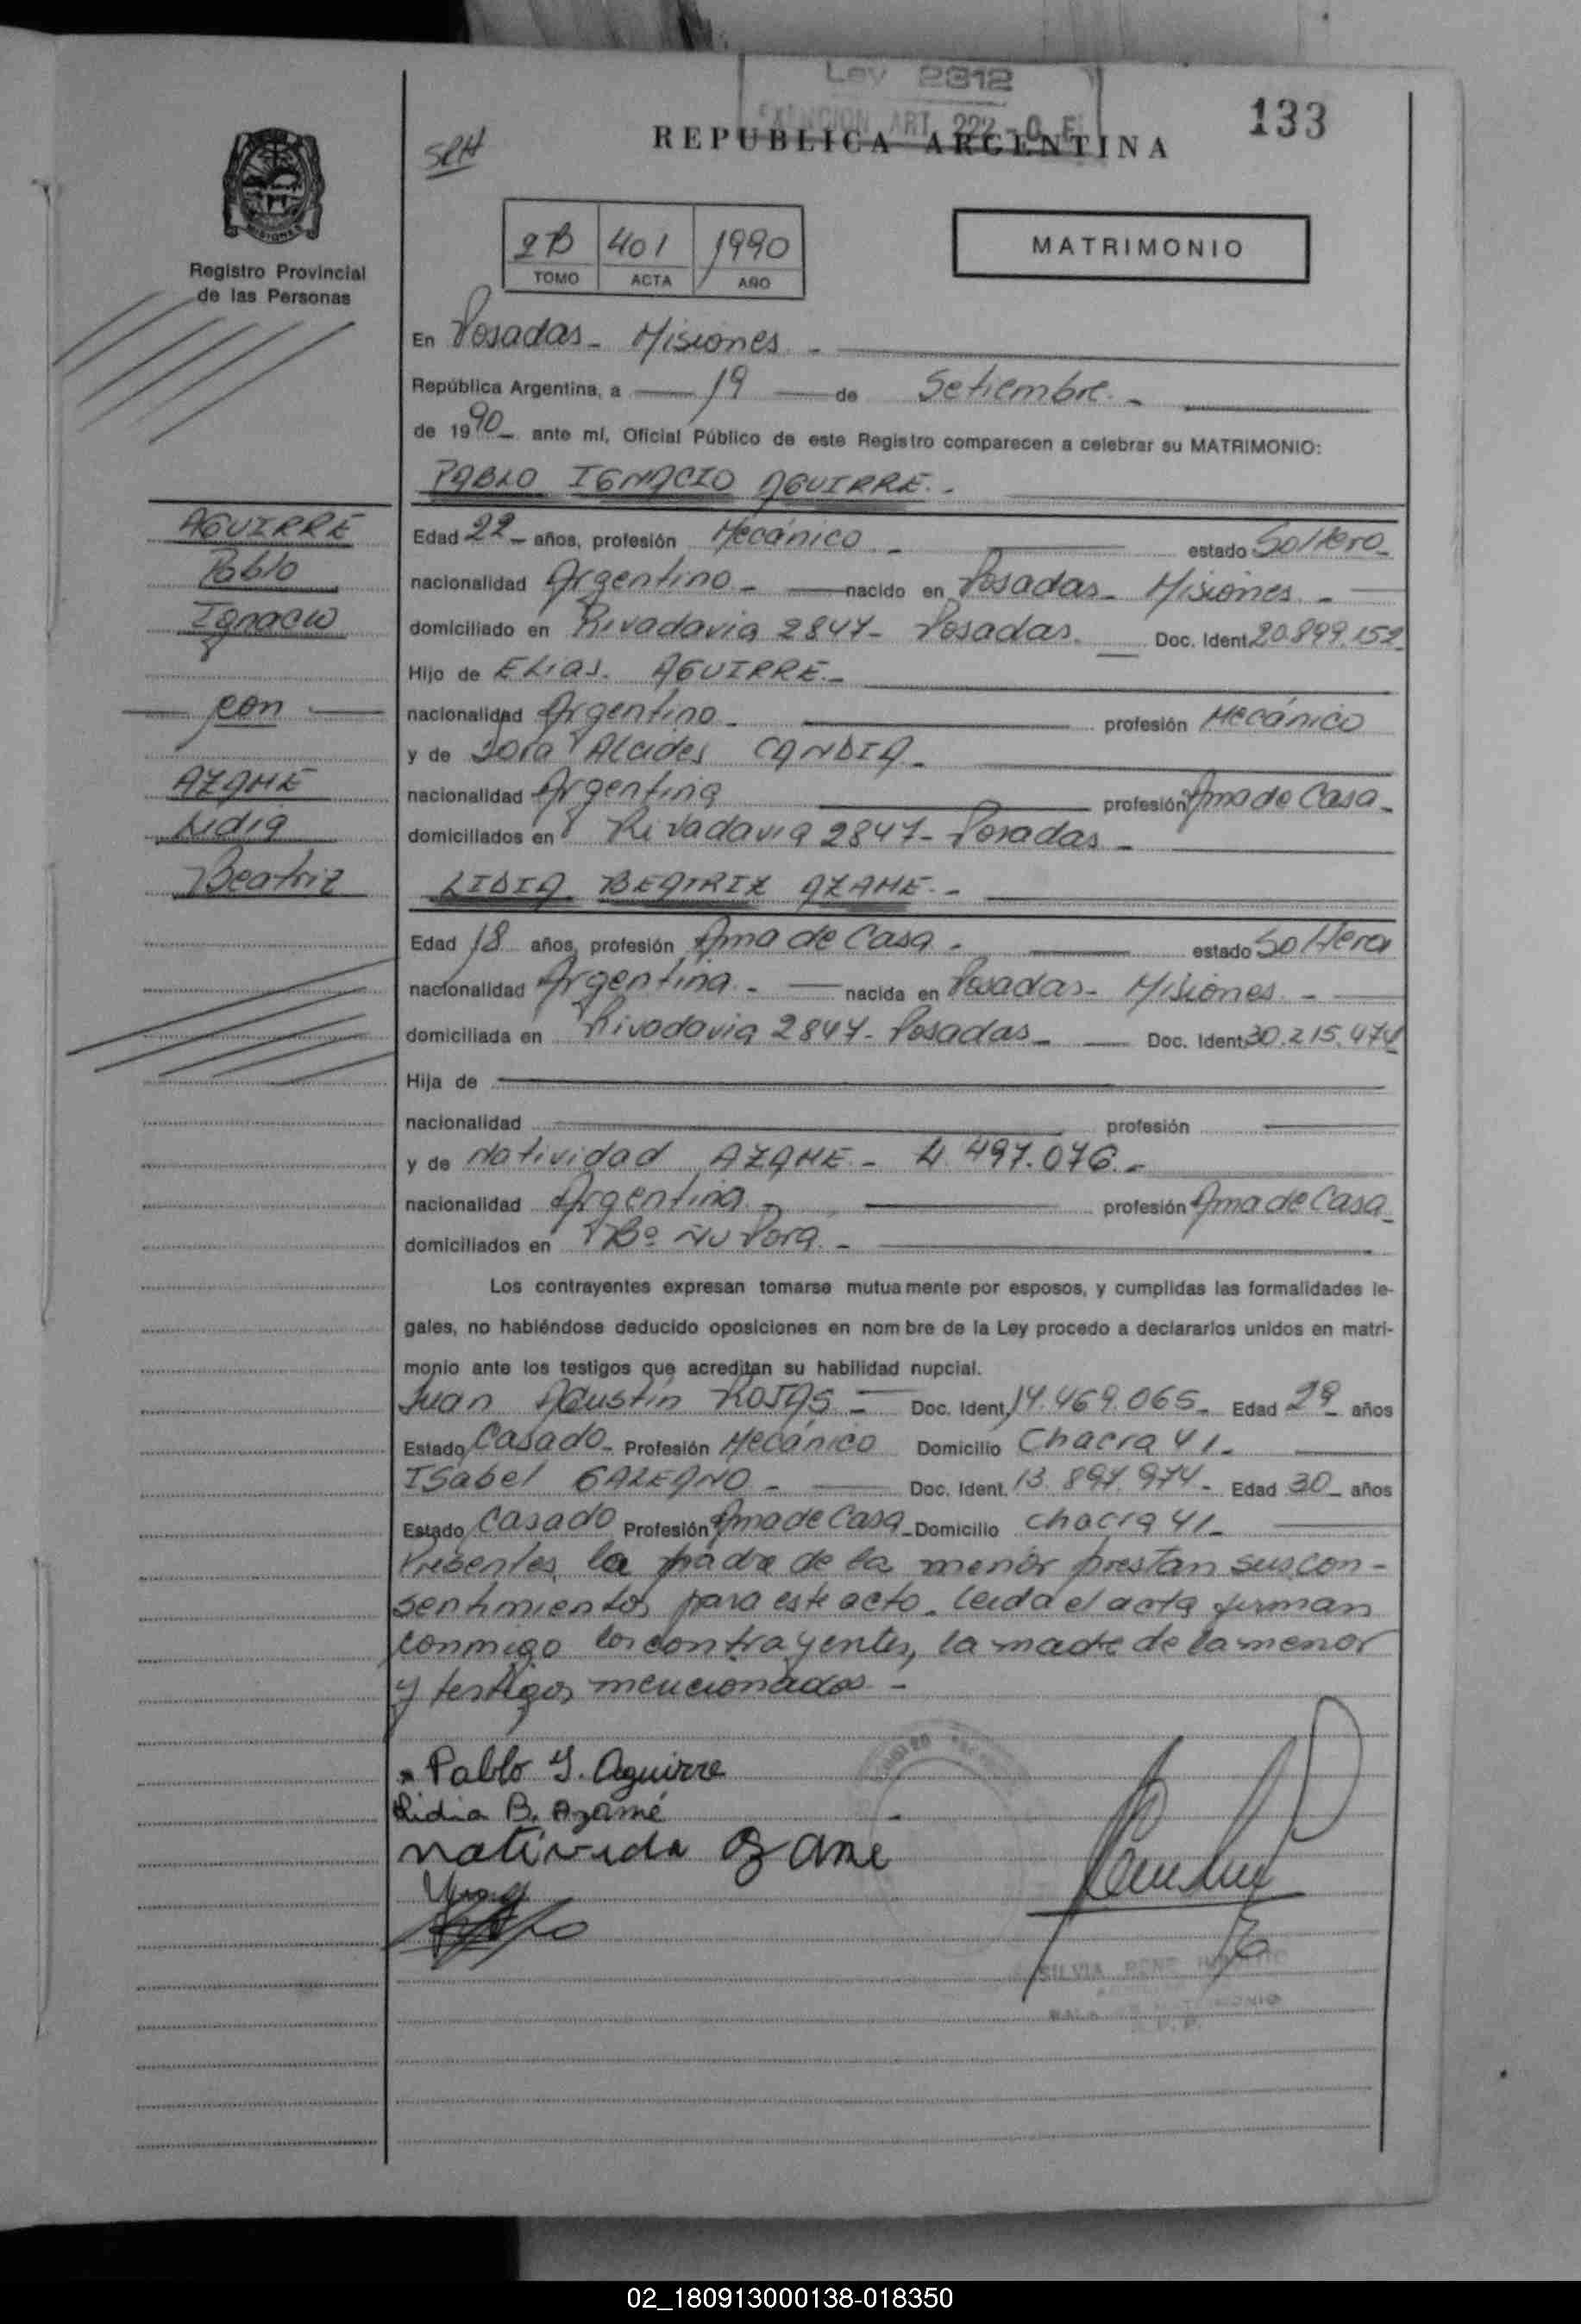 Ley 2312
EXENCION ART. 222 - O. F.
133
REPUBLICA ARGENTINA
SRH
2B 401 1990
TOMO ACTA AÑO
MATRIMONIO
MISIONES
Registro Provincial
de las Personas
En Posadas - Misiones -
República Argentina, a 19 de Setiembre. -
de 1990 - ante mí, Oficial Público de este Registro comparecen a celebrar su MATRIMONIO:
PABLO IGNACIO AGUIRRE. -
AGUIRRE
Pablo
Ignacio
con
AZAME
Lidia
Beatriz
Edad 22 - años, profesión Mecánico - estado Soltero -
nacionalidad Argentino - nacido en Posadas - Misiones -
domiciliado en Rivadavia 2847 - Posadas. Doc. Ident. 20.899.152
Hijo de ELias. AGUIRRE. -
nacionalidad Argentino - profesión Mecánico
y de Alcides CANDIA -
nacionalidad Argentina profesión Ama de Casa -
domiciliados en Rivadavia 2847 - Posadas -
LIDIA BEATRIZ AZAME. -
Edad 18 años, profesión Ama de Casa - estado Soltera
nacionalidad Argentina - nacida en Posadas - Misiones -
domiciliada en Rivadavia 2847 - Posadas - Doc. Ident. 30.215.474
Hija de
nacionalidad profesión
y de Natividad AZAME - 4.497.076. -
nacionalidad Argentina - profesión Ama de Casa -
domiciliados en Bº Ñu Porá. -
Los contrayentes expresan tomarse mutuamente por esposos, y cumplidas las formalidades le-
gales, no habiéndose deducido oposiciones en nombre de la Ley procedo a declararlos unidos en matri-
monio ante los testigos que acreditan su habilidad nupcial.
Juan Agustín ROJAS - Doc. Ident. 14.469.065 - Edad 29 - años
Estado Casado - Profesión Mecánico Domicilio Chacra 41 -
ISabel GALEANO - Doc. Ident. 13.897.974 - Edad 30 - años
Estado Casado Profesión Ama de Casa - Domicilio chacra 41 -
Presentes la madre de la menor prestan sus con-
sentimientos para este acto. Leida el acta firman
conmigo los contrayentes, la madre de la menor
y testigos mencionados -
Pablo I. Aguirre
Lidia B. Azamé
nativida azame
SILVIA RENE
02_180913000138-018350